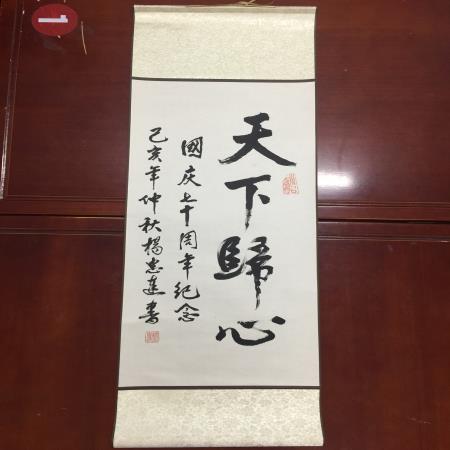 天下歸心
國庆七十周年纪念
己亥年仲秋楊志進書